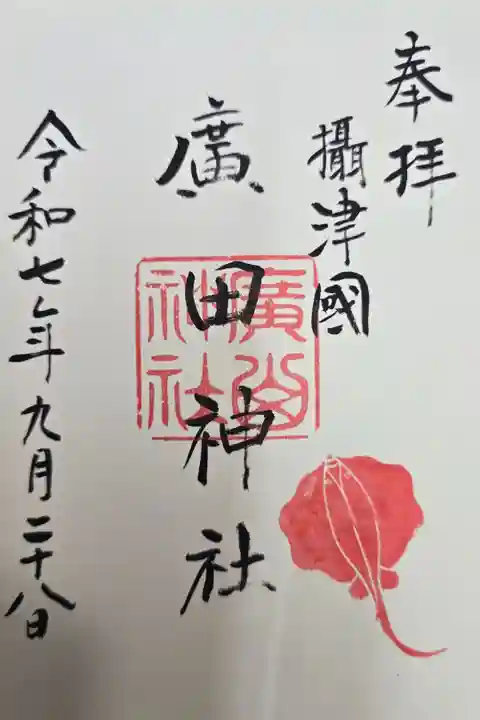 奉拝
攝津國
廣田神社
令和七年九月二十八日